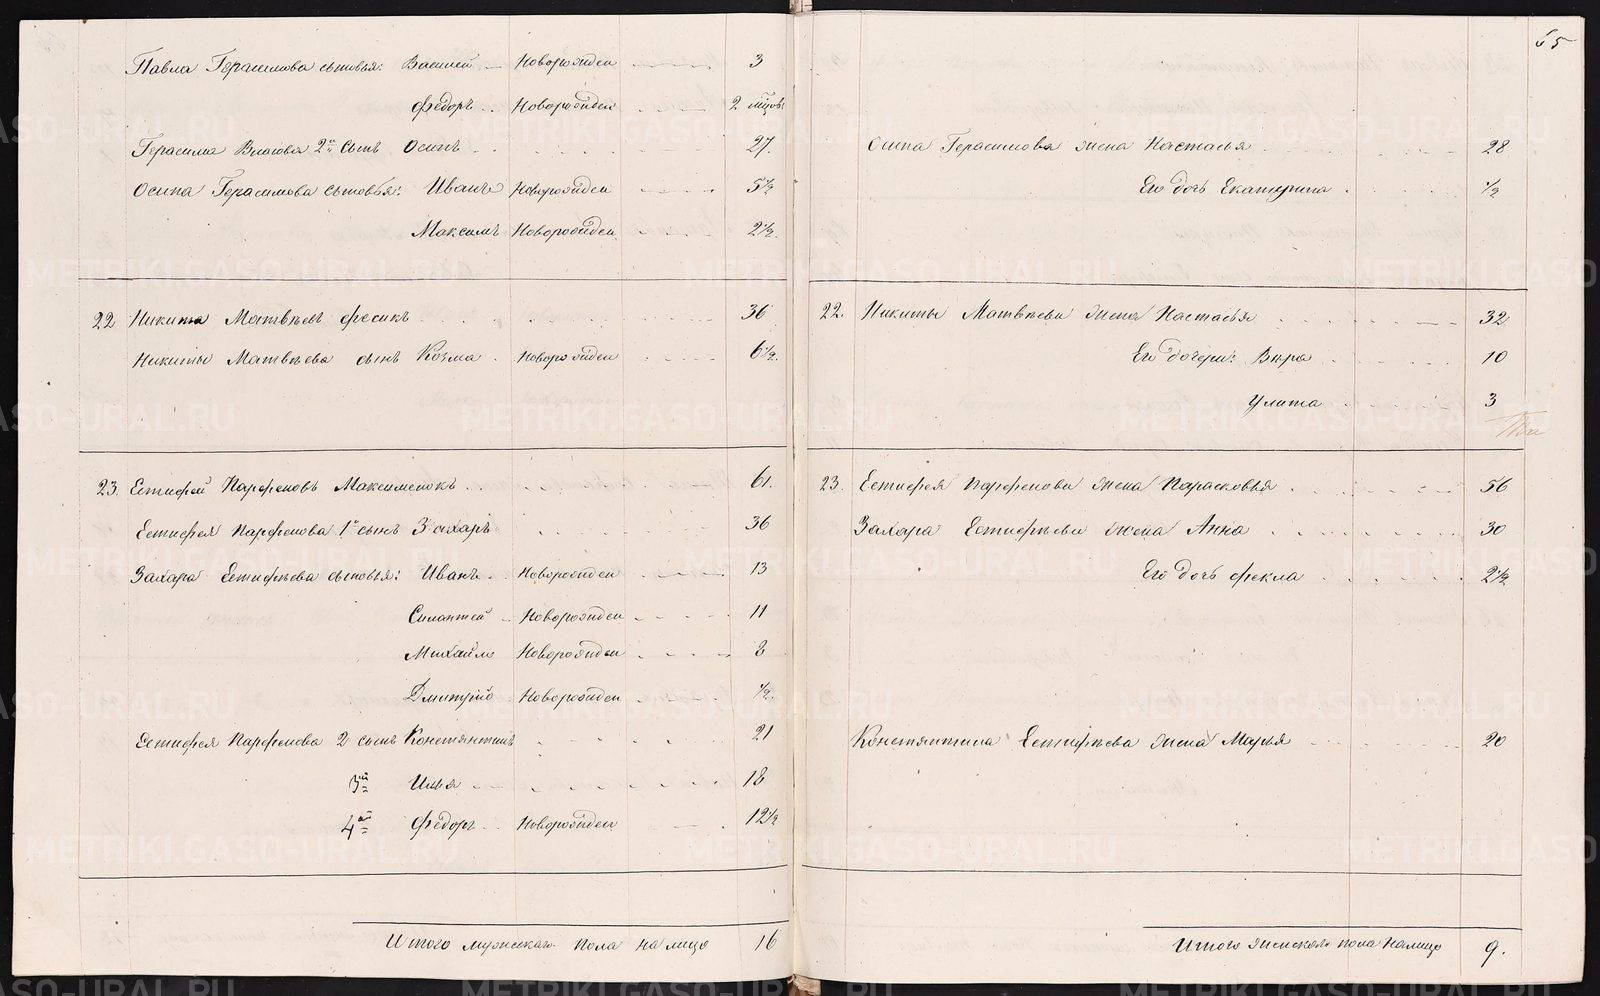 Павла Герасимова сыновья: Василей Новорожден 3
Федоръ Новорожден 2 мѣцов
Герасима Власова 2й сынъ Осипъ 27.
Осипа Герасимова сыновья: Иванъ Новорожден 5½
Максимъ Новорожден 2½.
22 Никита Матвѣевъ Фесикъ 36
Никиты Матвѣева сынъ Козма Новорожден 6½.
23. Естифей Парфеновъ Максименокъ 61.
Естифея Парфенова 1й сынъ Захаръ 36
Захара Естифѣева сыновья: Иванъ Новорожден 13
Силантей Новорожден 11
Михайло Новорожден 8
Дмитрій Новорожден ½.
Естифея Парфенова 2 сынъ Константинъ 21
3й Илья 18
4й Федоръ Новорожден 12½
Итого мужскаго пола на лицо 16
65
Осипа Герасимова жена Настасья 28
Его дочь Екатерина ½
22. Никиты Матвѣева жена Настасья 32
Его дочери: Вѣра 10
Улита 3
23. Естифея Парфенова жена Парасковья 56
Захара Естифѣева жена Анна 30
Его дочь Фекла 2½
Константина Естифѣева жена Марья 20
Итого женскаго пола налицо 9.
METRIKI.GASO-URAL.RU